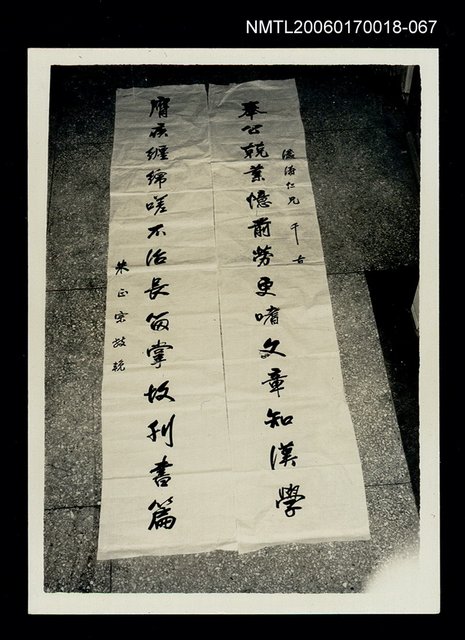 NMTL20060170018-067
濤仁兄 千古
奉公兢業憶前勞更嗜文章知漢學
膺疾纏綿嗟不治長留掌故刊書篇
朱正宗敬輓